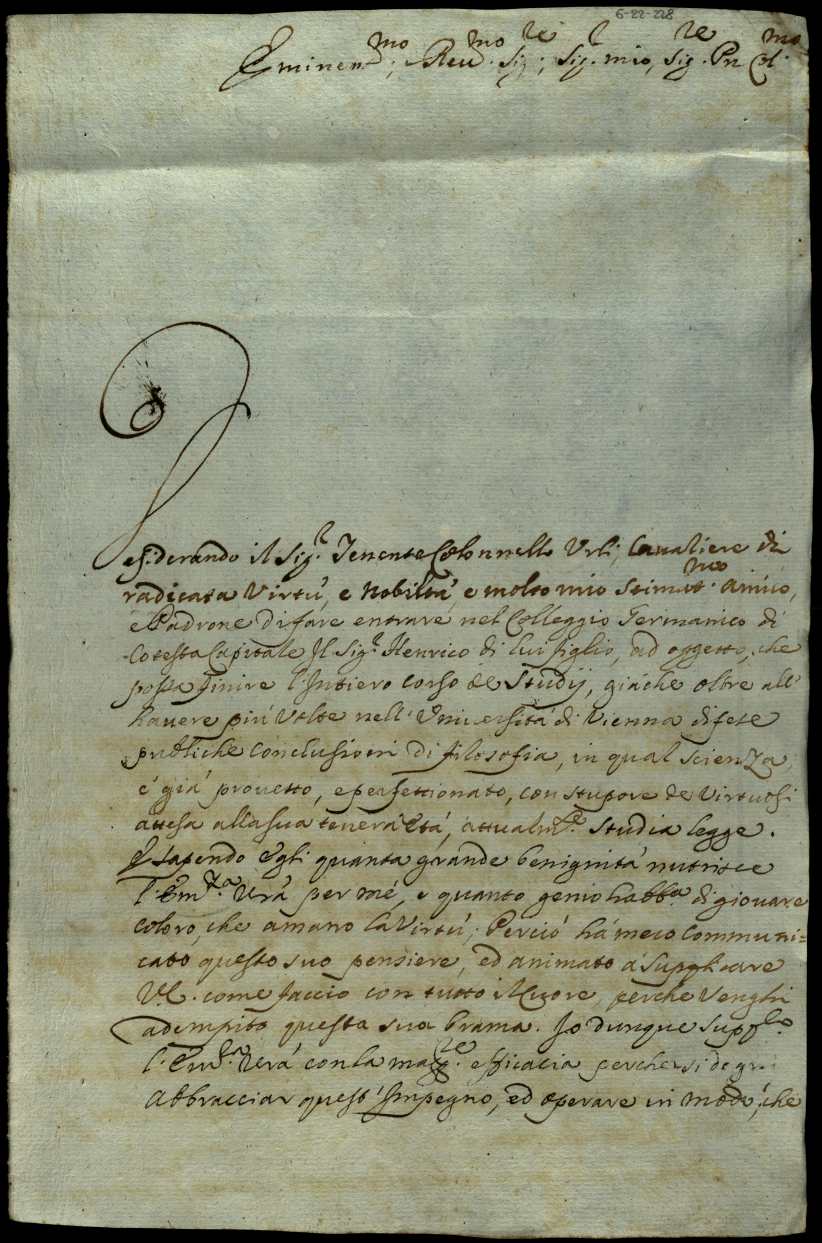 6-22-228
Eminen.mo, e Reu.mo Sig.re, Sig.r mio, Sig.re Pn Col.mo
Desiderando il Sig.r Tenente Colonnello Urli, Caualiere di
radicata Virtú, e Nobiltá, e molto mio stimat.mo amico,
e Padrone di fare entrare nel Colleggio Germanico di
Cotesta Capitale Il Sig.r Henrico di lui figlio, ad oggetto, che
possa finire l'Intiero Corso de Studij, giáche oltre all'
hauere piú Volte nell'Vniuersitá di Vienna difese
publiche Conclusioni di filosofia, in qual scienza,
é giá prouetto, e perfettionato, con stupore de Virtuosi
attesa alla sua tenera Etá, attualm.te studia legge.
E sapendo Egli quanta grande benignitá nutrisce
l'Em.za Vrã per mé, e quanto genio habbia di giouare
coloro, che amano la Virtú; Perció há meco Communi=
cato questo suo pensiere, ed animato á supplicare
VE. come faccio con tutto il Cuore, perche Venghi
adempito questa sua brama. Io dunque supp.co
l'Em.za Vrá con la mag.re efficacia perche si degni
abbracciar quest'Impegno, ed operare in modo, che